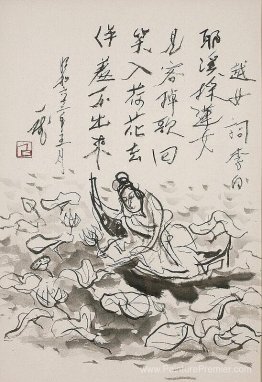 越女詞 李白
耶溪採蓮女
見客棹歌回
笑入荷花去
佯羞不出來
www.PeinturePremier.com